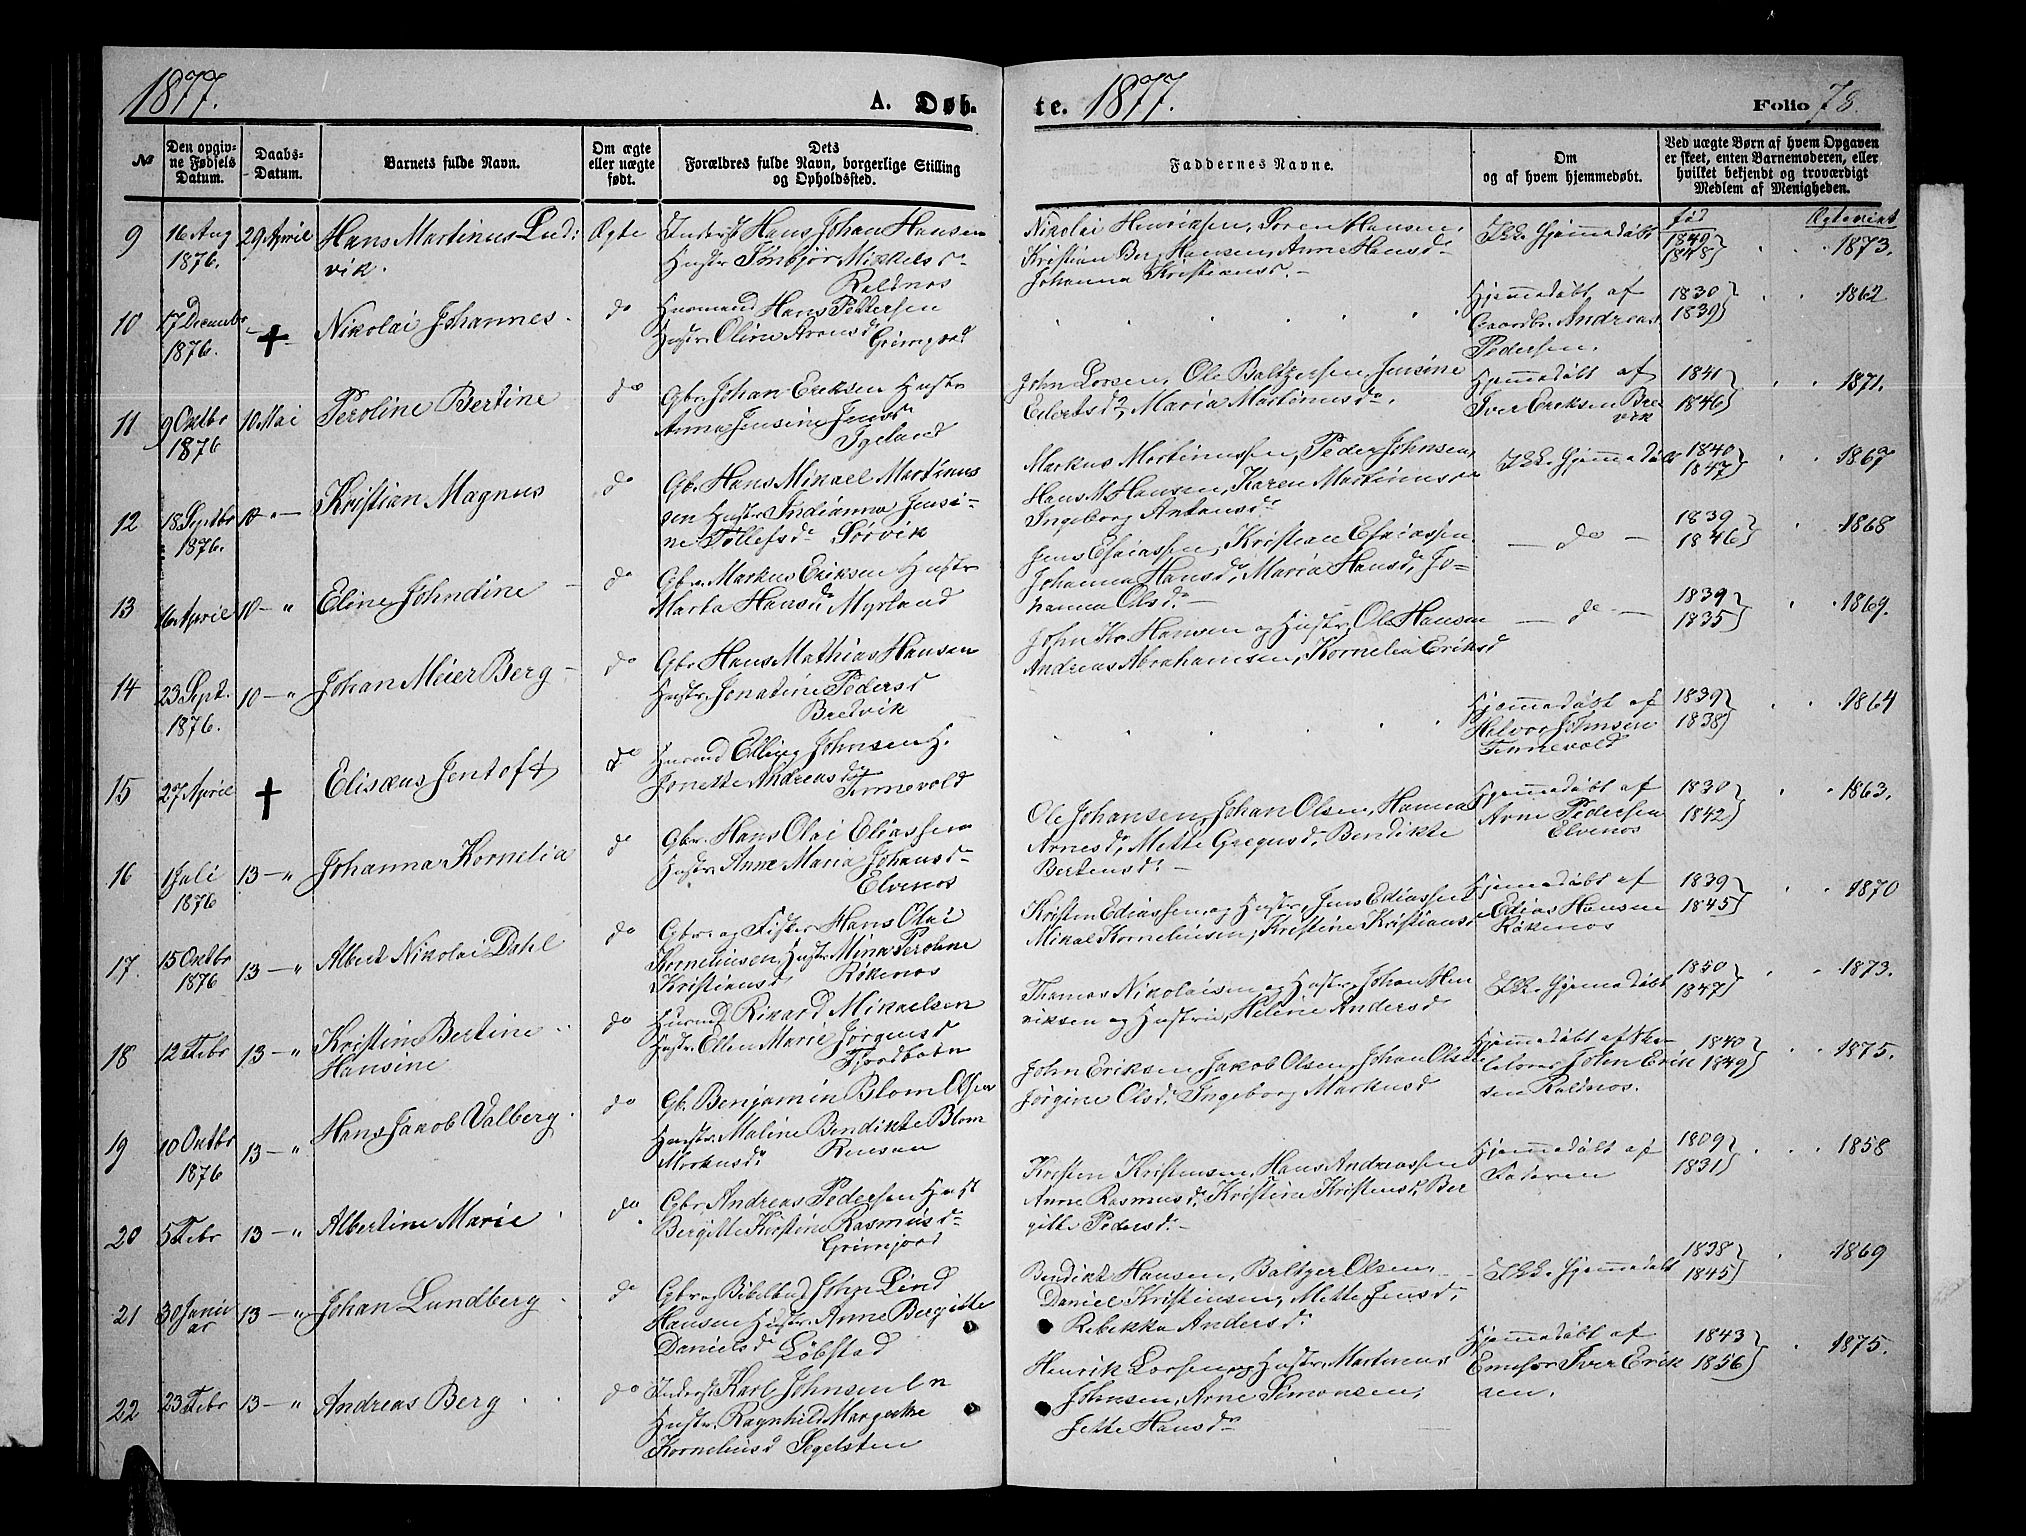 1877.
A. Døb-
te. 1877.
Folio 78.
No
Den opgiv-
ne Fødsels
Datum.
Daabs-
Datum.
Barnets fulde Navn.
Om ægte
eller uægte
født.
Dets
Forældres fulde Navn, borgerlige Stilling
og Opholdssted.
Faddernes Navne.
Om
og af hvem hjemmedøbt.
Ved uægte Børn af hvem Opgaven
er skeet, enten Barnemoderen, eller
hvilket bekjendt og troværdigt
Medlem af Menigheden.
født
Ægteviet
9
16 Aug
1876.
29 April
Hans Martinus Lud:
vik.
Ægte
Inderst Hans Johan Hansen
Hustr. Tønbjør Mikkelsd
Roldnos
Nikolai Henriksen, Søren Hansen,
Kristian Berg Hansen, Anne Hansd
Johanna Kristiansd.
Ikke Hjemmedøbt
1849
1848
1873.
10
17 December
1876.
+
Nikolai Johannes
do
Huusmand Hans Pettersen
Hustr. Oline Aronsd
Hjemmedøbt af
Gaardbr. Andreas
Pedersen.
1830
1839
1862
11
9 Oktbr
1876
10 Mai
Peroline Bertine
do
Gbr. Johan Eriksen Hustr
Anna Jensine Jensd
Igeland
John Lorsen, Ole Baltzersen, Jensine
Eilertsd, Maria Martinusd.
Hjemmedøbt af
Iver Eriksen Bre
vik
1841
1846
1871.
12
18 Septbr
1876.
10 "
Kristian Magnus
do
Gbr. Hans Mikael Martinus
sen Hustr. Indianna Jensi-
ne Tollefsd Sørvik
Markus Martinussen, Peder Johnsen,
Hans M. Hansen, Karen Martinusd
Ingeborg Antonsd
Ikke Hjemmedøbt
1840
1847
1867
13
16 April
10 "
Eline Johndine
do
Gbr. Markus Eriksen Hustr
Marta Hansd Myrland
Jens Esaiassen, Kristian Esaiassen
Johanna Hansd, Maria Hansd, Jo-
hanna Olsd.
do
1839
1846
1868
14
23 Sept.
1876.
10 "
Johan Meier Berg
do
Gbr. Hans Mathias Hansen
Hustr. Jonatine Pedersd
Bredvik
John Kr. Hansen og Hustr., Ole Hansen
Andreas Abrahamsen, Kornelia Eriksd
do
1839
1835
1869.
15
27 April
+
Elisæus Jentoft
do
Husmd Elling Johnsen H.
Jonette Andreasd
Tennevold
Hjemmedøbt af
Halvor Johnsen
Tennevold
1839
1838
1864
16
1 Juli
1876
13 "
Johanna Kornelia
do
Gbr. Hans Olai Eliassen
Hustr. Anne Maria Johansd
Elvenos
Ole Johansen, Johan Olsen, Hanna
Arnesd, Mette Gregusd, Bendikte
Bertensd.
Hjemmedøbt af
Arne Pedersen
Elvenos
1830
1842
1863.
17.
15 Oktbr
1876
13 "
Albert Nikolai Dahl
do
Gbr. og Fisker Hans Olai
Korneliusen, Hustr. Mina Peroline
Kristiansd Røkenos
Kristen Ediassen og Hustr, Jens Ediassen
Mikal Korneliusen, Kristine Kristiansd
Hjemmedøbt af
Edias Hansen
Røkenos
1839
1845
1870
18
12 Febr
13 "
Kristine Bertine
Hansine
do
Husmd Rikard Mikaelsen
Hustr. Ellen Marie Jørgensd
Fjordbotn
Thomas Nikolaisen og Hustr., Johan Hen
riksen og Hustru, Helene Andersd
Ikke Hjemmedøbt
1850
1847
1873.
19
10 Oktbr
1876
13 "
Hans Jakob Valberg
do
Gb. Benjamin Blom Olsen
Hustr. Maline Bendikte Blom
Markusd. Rensaa
John Eriksen, Jakob Olsen, Johan Olsen
Jørgine Olsd, Ingeborg Markusd
Hjemmedøbt af Sko
lelærer John Erik
sen Roldnos.
1840
1849
1875.
20
5 Febr
13 "
Albertine Marie
do
Gbr. Andreas Pedersen Hust
Bergitte Kirstine Rasmusd
Grimjord
Kristen Kristensen, Hans Andreassen
Anne Rasmusd, Kristine Kristensd, Ber
gitte Pedersd.
Hjemmedøbt af
Faderen
1809
1831
1858
21
30 Janu
ar
13 "
Johan Lundberg
do
Gbr og Bibelbud John Lind
Hansen Hustr. Anne Bergitte
Danielsd Løbstad
Bendikt Hansen, Baltzer Olsen,
Daniel Kristensen, Mette Jensd,
Rebekka Andersd.
Ikke Hjemmedøbt
1838
1845
1869
22
23 Febr
13 "
Andreas Berg
do
Inderst Karl Johnsen
Hustr. Ragnhild Margrethe
Korneliusd Segelsten
Henrik Lorsen og Hustr, Martinus
Johnsen, Arne Simonsen,
Jette Hansd
Hjemmedøbt af
Iver Erik
sen.
1843
1856
1875.